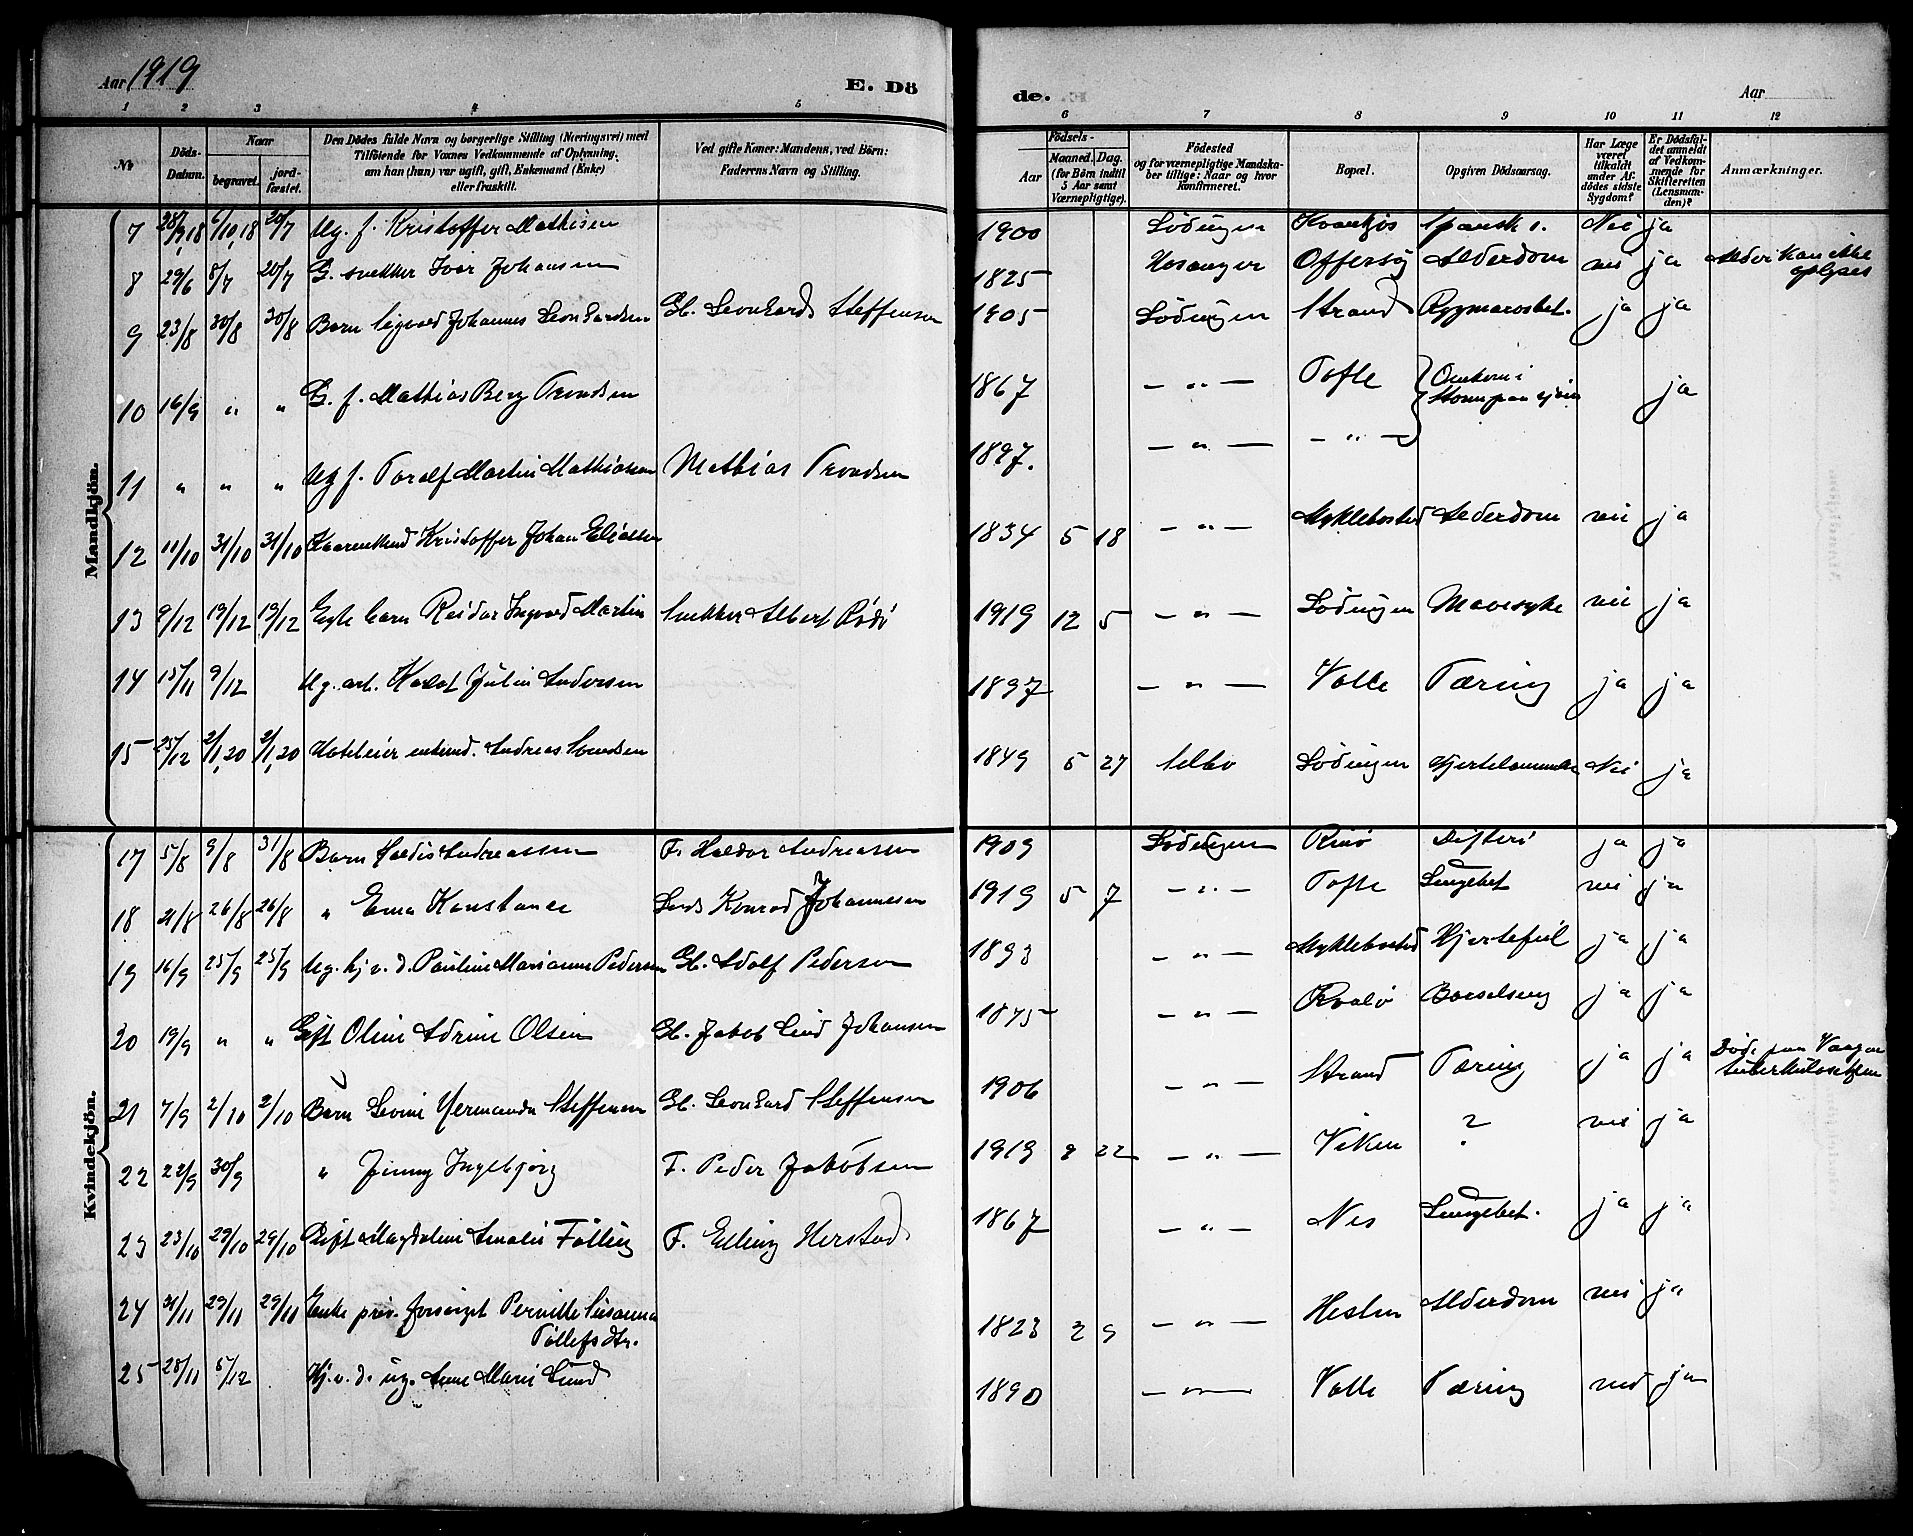 Aar 1919 E. Dö de. Aar
1 2 3 4 5 6 7 8 9 10 11 12
No Döds-Datum. Naar begravet. jord-fæstet. Den Dödes fulde Navn og borgerlige Stilling (Næringsvei) med Tilföiende for Voxnes Vedkommende af Oplysning, om han (hun) var ugift, gift, Enkemand (Enke) eller fraskilt. Ved gifte Koner: Mandens, ved Börn: Faderens Navn og Stilling. Födsels- Aar Maaned. Dag. (for Börn indtil 5 Aar samt Værnepligtige). Födested og for værnepligtige Mandska-ber tillige: Naar og hvor konfirmeret. Bopæl. Opgiven Dödsaarsag. Har Læge været tilkaldt under Af-dödes sidste Sygdom? Er Dödsfal-det anmeldt af Vedkom-mende for Skifteretten (Lensman-den)? Anmærkninger.
Mandkjön.
7 28/9,18 6/10,18 20/7 Ug. f. Kristoffer Mathisen 1900 Lödingen Spansk s. Nei ja
8 29/6 8/7 20/7 G. snekker Ivar Johansen 1825 Offersöj Alderdom nei ja Alder kan ikke oplyses
9 23/8 30/8 30/8 Barn Sigvard Johannes Leonhardsen Gb. Leonhard Steffensen 1905 Lödingen Strand Rygmarvsbet. ja ja
10 16/9 " " G. f. Mathias Berg Trondsen 1867 — " — Tofte Omkom i Storm paa sjöen ja
11 " " " Ug f. Toralf Martin Mathiassen Mathias Trondsen 1897. — " — — " —
12 11/10 31/10 31/10 Kaarenkund Kristoffer Johan Eliassen 1834 5 18 — " — Myklebostad Alderdom nei ja
13 9/12 19/12 19/12 Egte barn Reidar Ingvard Martin Snekker Albert Rödö 1919 12 5 — " — Lödingen Mavesyke nei ja
14 15/11 9/12 Ug. arb. Julin Andersen 1897 — " — Volle Tæring ja ja
15 25/12 2/1,20 2/1,20 Hoteleier enkmd. Andreas Svendsen 1849 5 27 Selbo Lödingen Hjertelammelse Nei ja
Kvindekjön.
17 5/8 9/8 31/8 Barn Haldis Andreassen F. Haldor Andreassen 1909 Lödingen Rinö Difteri ja ja
18 21/8 26/8 26/8 " Erna Konstance Konrad Johannesen 1919 5 7 — " — Tofte Lungebet nei ja
19 16/9 25/9 25/9 Ug. hj. v. d. Pauline Marianne Pedersen Gb. Adolf Pedersen 1893 — " — Myklebostad Hjertefeil ja ja
20 19/9 " " Gift Oline Adrine Olsen Gb. Jakob Lind Johansen 1875 — " — Kvalö Barselseng ja ja
21 7/9 2/10 2/10 Barn Levine Hermanda Steffensen Gb. Leonhard Steffensen 1906 — " — Strand Tæring ja ja Döde paa Vaagan tuberkulosehjem
22 22/9 30/9 " Jinny Ingebjörg F. Peder Jakobsen 1919 8 22 — " — Viken ? nei ja
23 23/10 29/10 29/10 Gift Magdalene Amalie Fölling F. Elling Herstad 1867 — " — Nes Lungebet. ja ja
24 21/11 29/11 29/11 Enke priv. forsörget Pernille Susanna Tollefsdtr. 1823 2 9 — " — Heslen Alderdom nei ja
25 28/11 5/12 Hj. v. d. ug. Anne Marie Lund 1890 — " — Volle Tæring ned ja